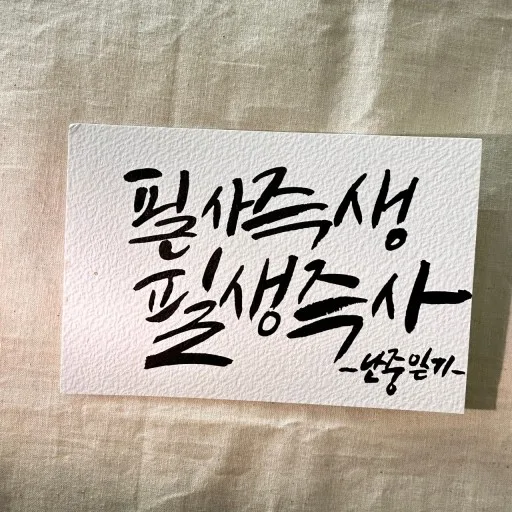 필사즉생
필생즉사
-난중일기-